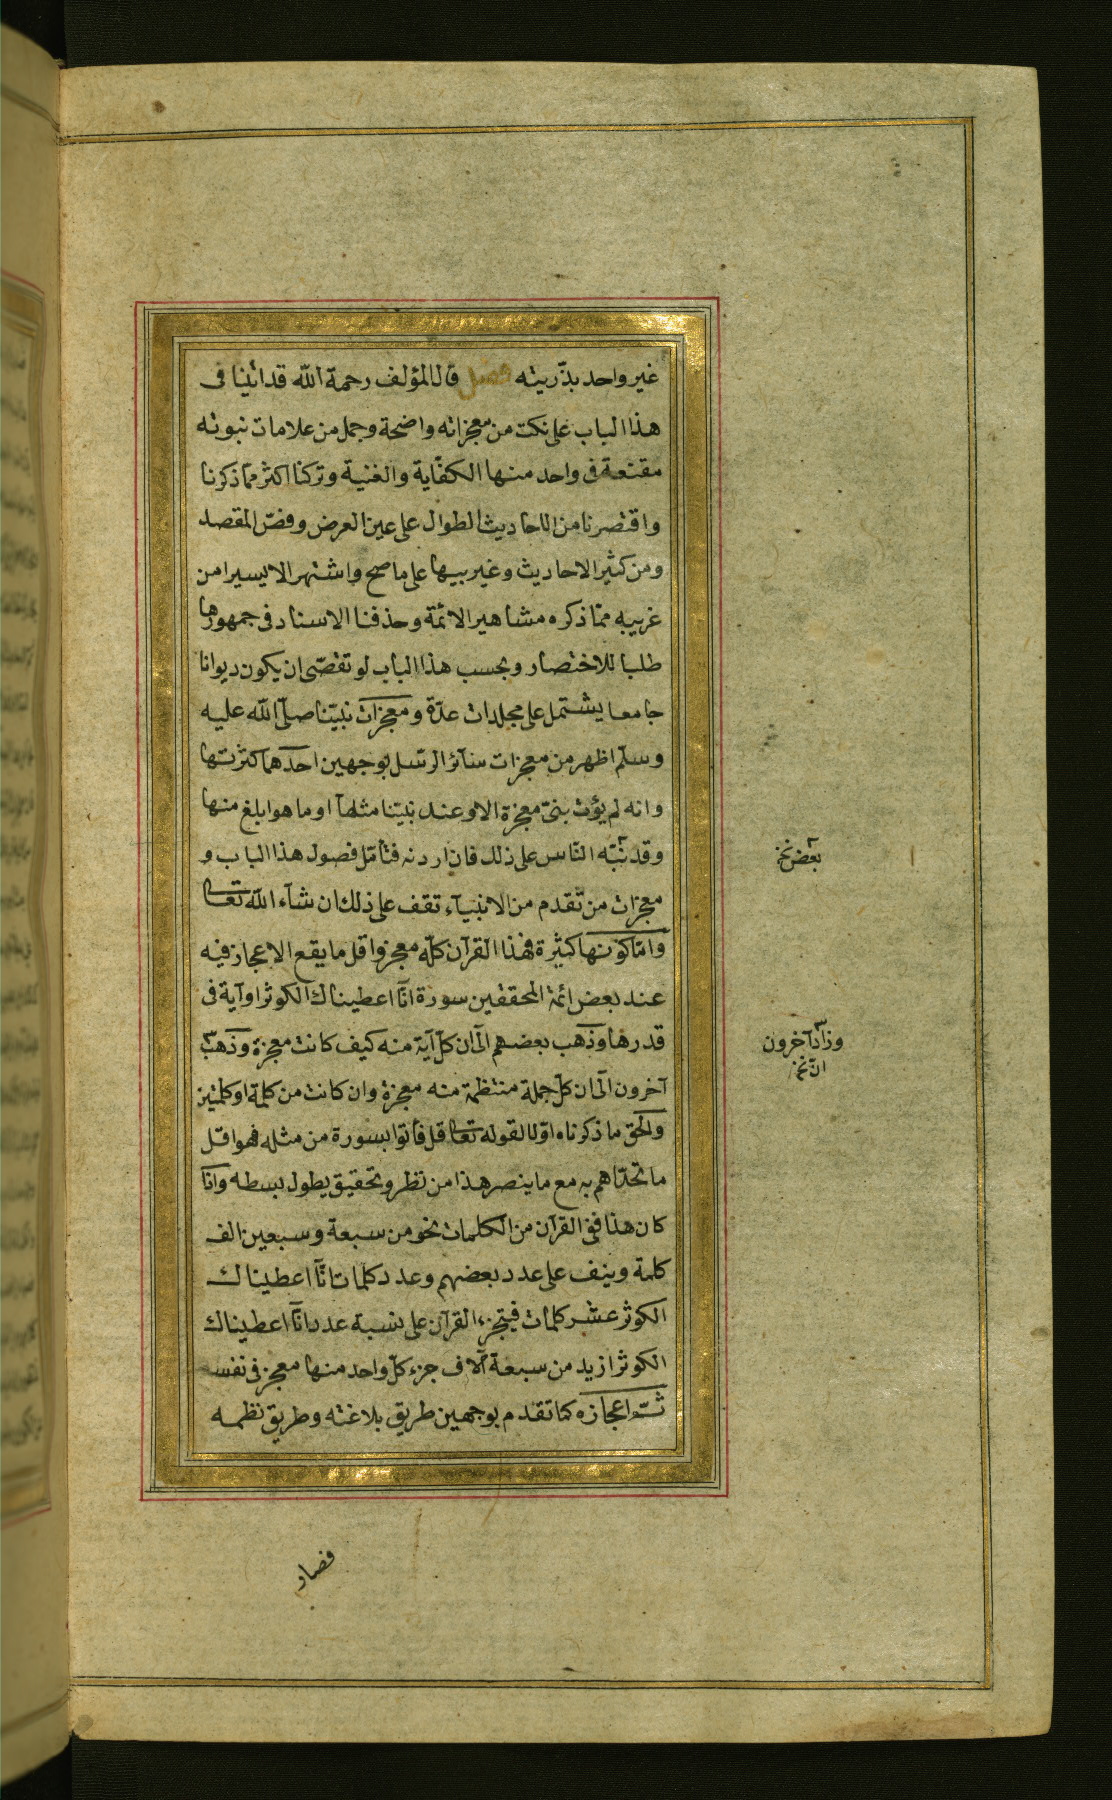 غير واحد بذريته فصل قال المؤلف رحمة الله قد اتينا فى
هذا الباب على نكت من معجزاته واضحة وجمل من علامات نبوته
مقنعة فى واحد منها الكفاية والغنية وتركنا اكثر مما ذكرنا
واقتصرنا من الاحاديث الطوال على عين الغرض وفص المقصد
ومن كثير الاحاديث وغريبها على ما صح واشتهر الا يسيرا من
غريبه مما ذكره مشاهير الائمة وحذفنا الاسناد فى جمهورها
طلبا للاختصار وبحسب هذا الباب لو تقصى ان يكون ديوانا
جامعا يشتمل على مجلدات عدة ومعجزات نبينا صلى الله عليه
وسلم اظهر من معجزات سائر الرسل بوجهين احدهما كثرتها
وانه لم يؤت نبى معجزة الا وعند نبينا مثلها او ما هو ابلغ منها
وقد نبه الناس على ذلك فان اردته فتأمل فصول هذا الباب و
معجزات من تقدم من الانبياء تقف على ذلك ان شاء الله تعالى
واما كونها كثيرة فهذا القرآن كله معجز واقل ما يقع الاعجاز فيه
عند بعض ائمة المحققين سورة انا اعطيناك الكوثر او آية فى
قدرها وذهب بعضهم الى ان كل آية منه كيف كانت معجزة وذهب
آخرون الى ان كل جملة منتظمة منه معجزة وان كانت من كلمة او كلمتين
والحق ما ذكرناه اولا لقوله تعالى قل فأتوا بسورة من مثله فهو اقل
ما تحداهم به مع ما ينصر هذا من نظر وتحقيق يطول بسطه واذا
كان هذا ففى القرآن من الكلمات نحو من سبعة وسبعين الف
كلمة ونيف على عدد بعضهم وعدد كلمات انا اعطيناك
الكوثر عشر كلمات فيتجزء القرآن على نسبة عدد انا اعطيناك
الكوثر ازيد من سبعة آلاف جزء كل واحد منها معجز فى نفسه
ثم اعجازه كما تقدم بوجهين طريق بلاغته وطريق نظمه
بعض نخ
وزاد آخرون
نخ
فصار